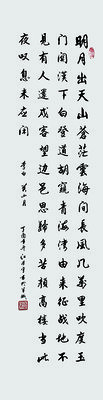 明月出天山蒼茫雲海間長風几萬里吹度玉
門關漢下白登道胡窺青海灣由来征战地不
見有人還戍客望邊邑思歸多苦顏高樓當此
夜叹息未應闲
李白 關山月